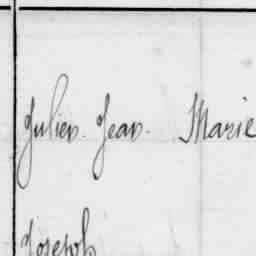 Julien Jean Marie
Joseph